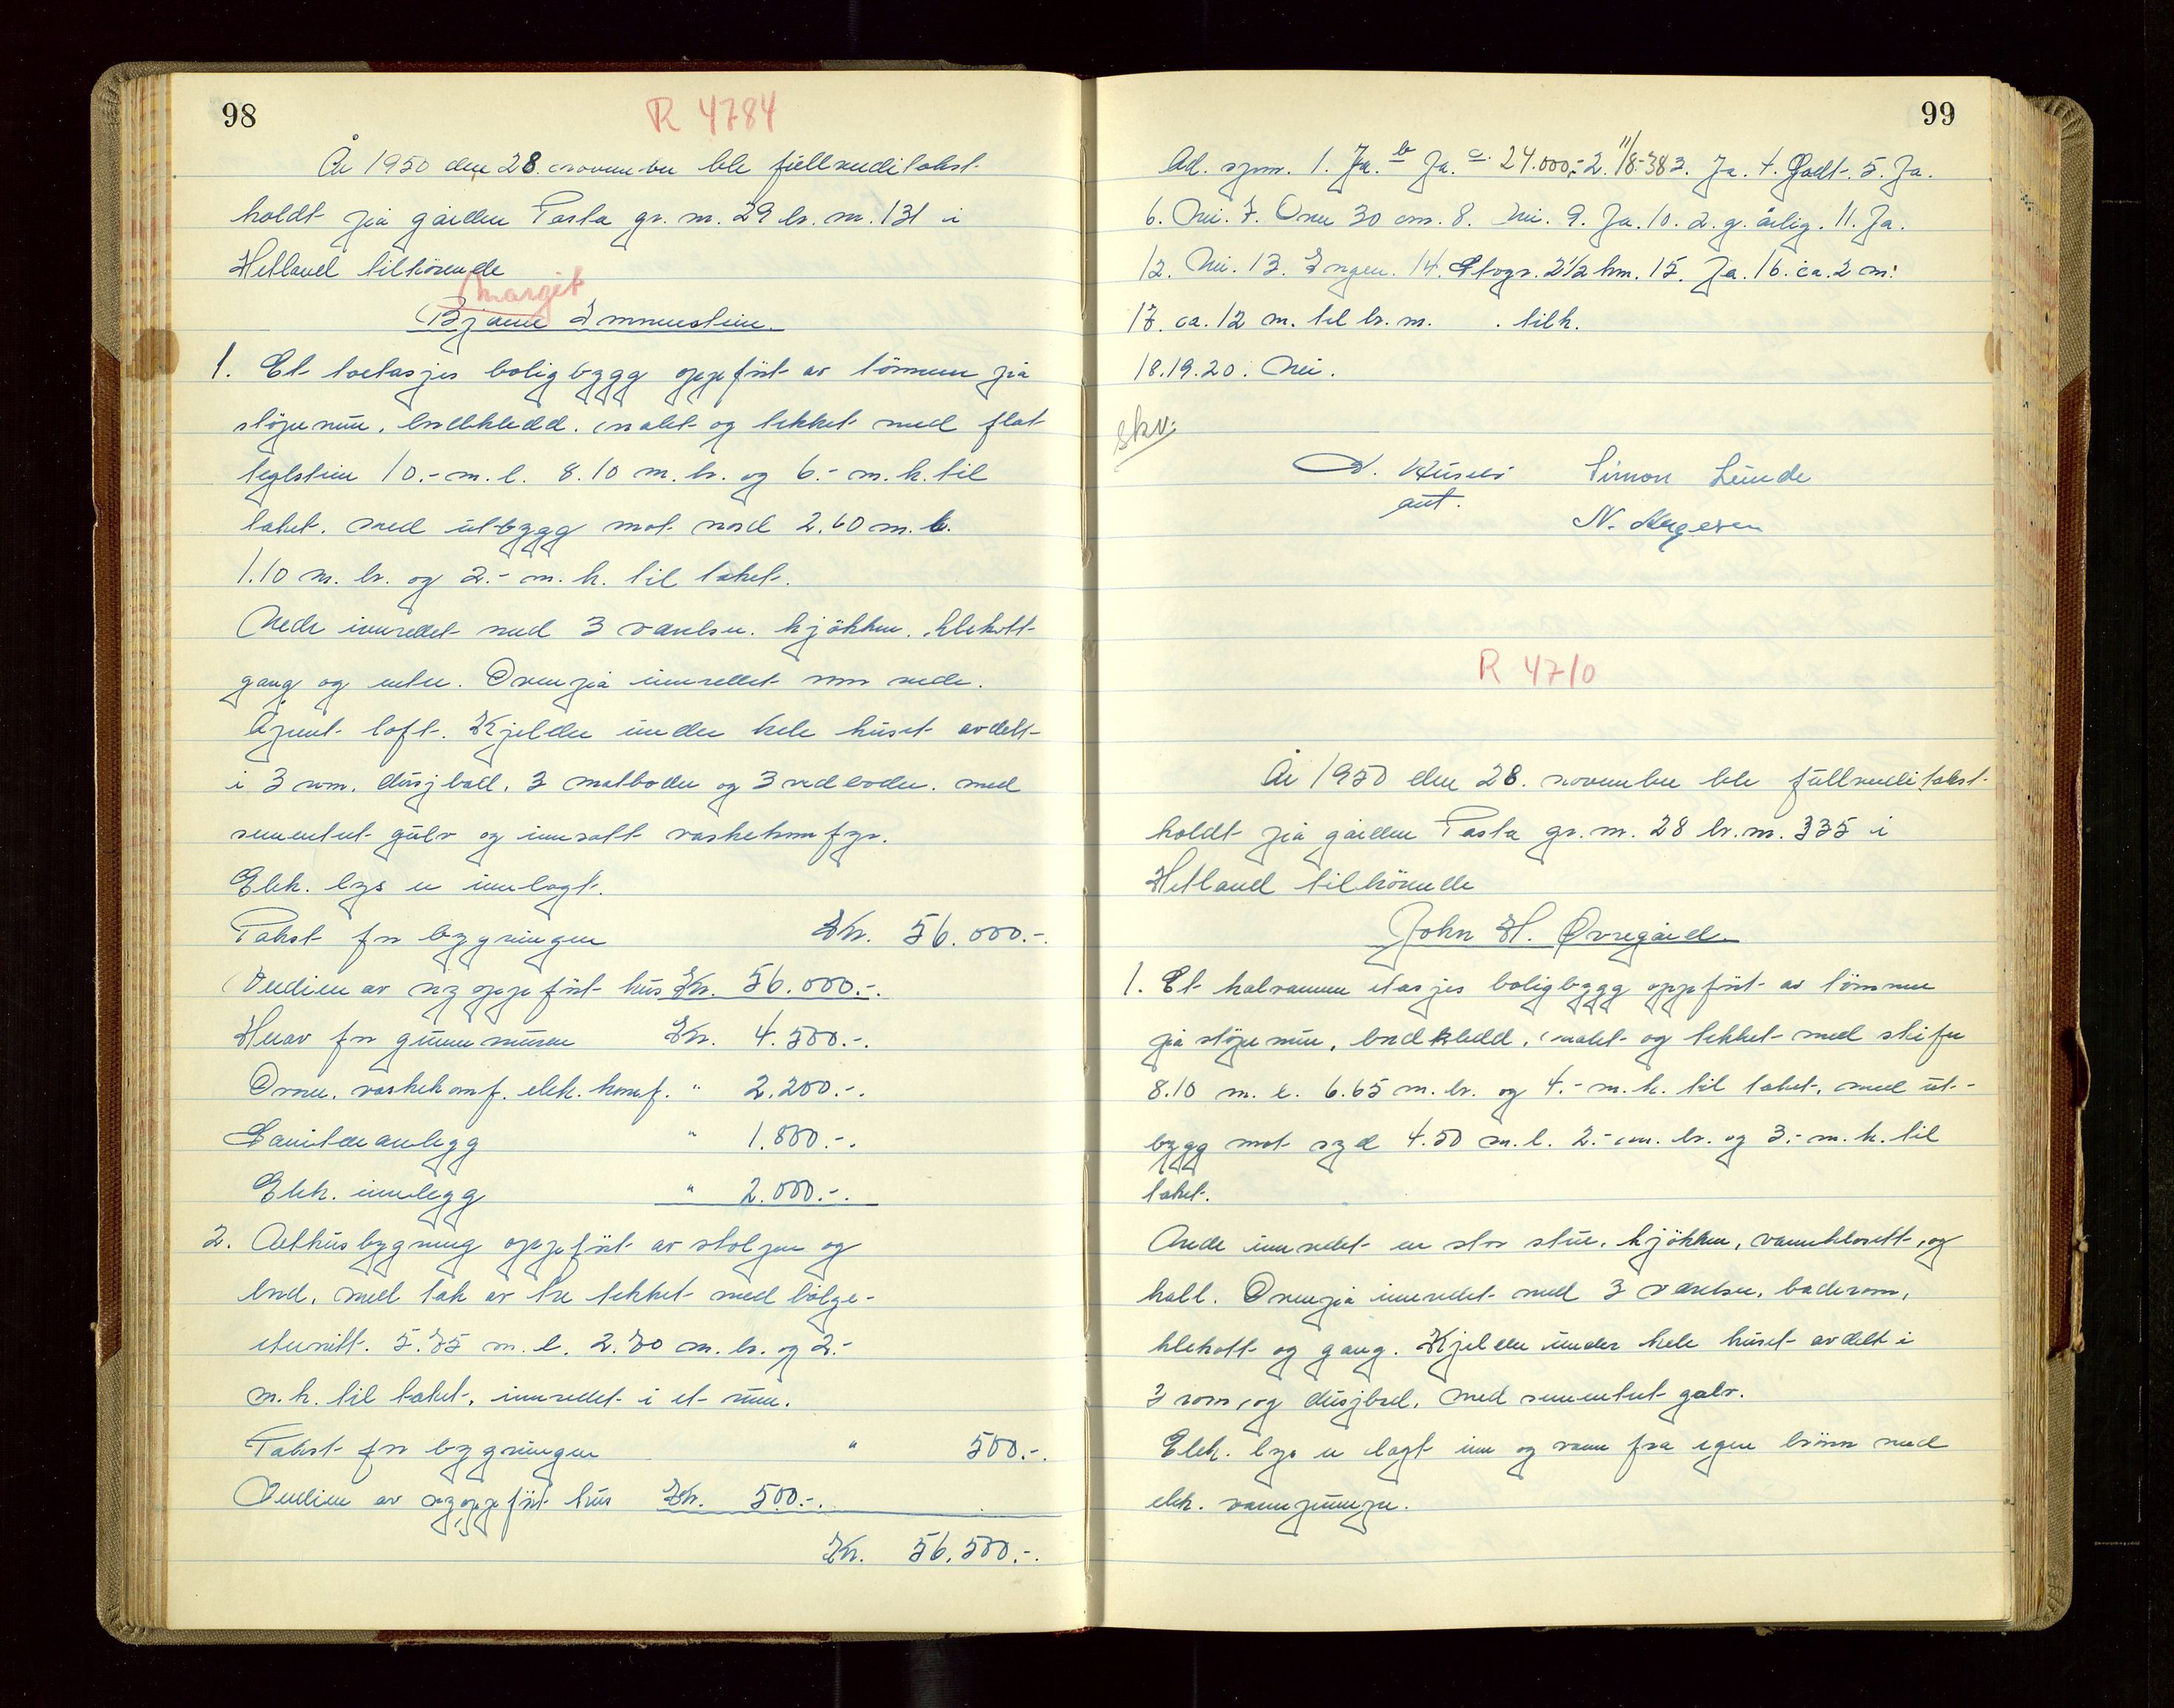 98
R 4784
År 1950 den 28. november ble fullverditakst
holdt på gården Tasta gr. nr. 29 br. nr. 131 i
Hetland tilhörende
Margit
Bjarne Immerstein
1. Et toetasjes boligbygg oppfört av tömmer på
stöpemur, bordkledd, malt og tekket med flat
teglstein 10.- m. l. 8.10 m. br. og 6.- m. h. til
taket, med utbygg mot nord 2.60 m. l.
1.10 m. br. og 2.- m. h. til taket.
Nede innredet med 3 værelser, kjökken, klekott
gang og entre. Ovenpå innredet som nede.
Åpent loft. Kjelder under hele huset avdelt
i 3 rom, dusjbad, 3 matboder og 3 vedboder, med
sementert gulv og innsatt vaskekomfyr.
Elek. lys er innlagt.
Takst for bygningen Kr. 56.000.-.
Verdien av ny oppfört hus Kr. 56.000.-.
Herav for grunnmuren Kr. 4.500.-.
Ovner, vaskekomf. elek. komf. " 2.200.-.
Sanitæranlegg " 1.800.-.
Elek. innlegg " 2.000.-.
2. Uthusbygning oppfört av stolper og
bord, med tak av tre tekket med bölge-
eternitt. 5.75 m. l. 2.70 m. br. og 2.-
m. h. til taket, innredet i et rum.
Takst for bygningen " 500.-.
Verdien av nyoppfört hus Kr. 500.-.
Kr. 56.500.-.
99
Ad. spm. 1. Ja. b Ja. c. 24.000,- 2. 11/8-38 3. Ja. 4. Godt. 5. Ja.
6. Nei. 7. Over 30 cm. 8. Nei. 9. Ja. 10. 2. g. årlig. 11. Ja.
12. Nei. 13. Ingen. 14. Stvgr. 2 1/2 km. 15. Ja. 16. ca. 2 m.
17. ca. 12 m. til br. nr. . tilh.
18. 19. 20. Nei.
skv.
Simon Lunde
aut.
R 4710
År 1950 den 28. november ble fullverditakst
holdt på gården Tasta gr. nr. 28 br. nr. 335 i
Hetland tilhörende
John H. Øvregård
1. Et halvannen etasjes boligbygg oppfört av tömmer
på stöpemur, bordkledd, malt og tekket med skifer
8.10 m. l. 6.65 m. br. og 4.- m. h. til taket, med ut-
bygg mot syd 4.50 m. l. 2.- m. br. og 3.- m. h. til
taket.
Nede innredet en stor stue, kjökken, vannklosett, og
hall. Ovenpå innredet med 3 værelser, baderom,
klekott og gang. Kjelder under hele huset avdelt i
3 rom, og dusjbad, med sementert golv.
Elek. lys er lagt inn og vann fra egen brönn med
elek. vannpumpe.